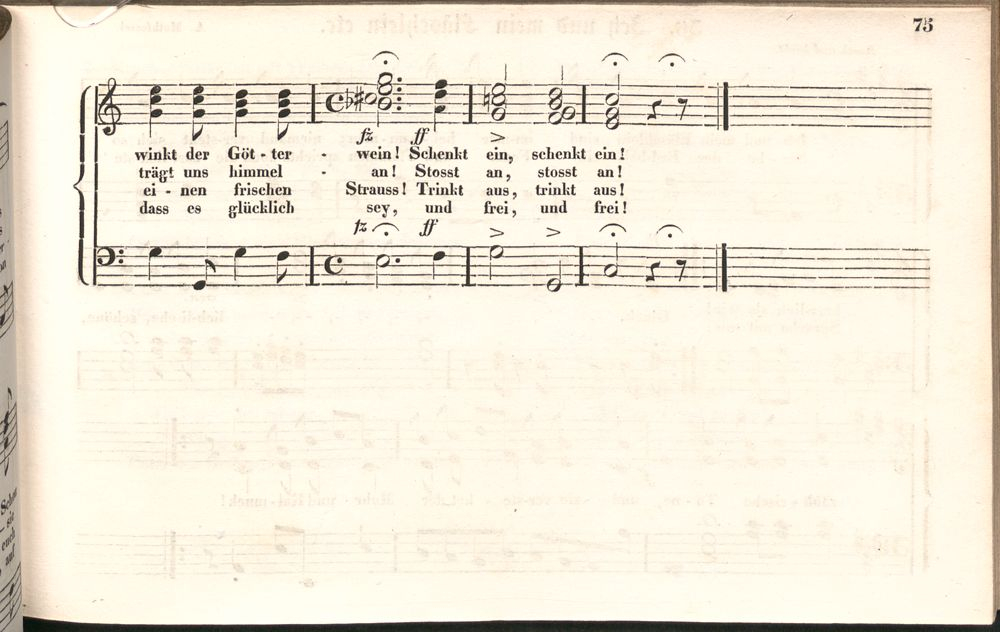 75
fz ff >
winkt der Göt - ter - wein! Schenkt ein, schenkt ein!
trägt uns himmel - an! Stosst an, stosst an!
ei - nen frischen Strauss! Trinkt aus, trinkt aus!
dass es glücklich sey, und frei, und frei!
fz ff > >